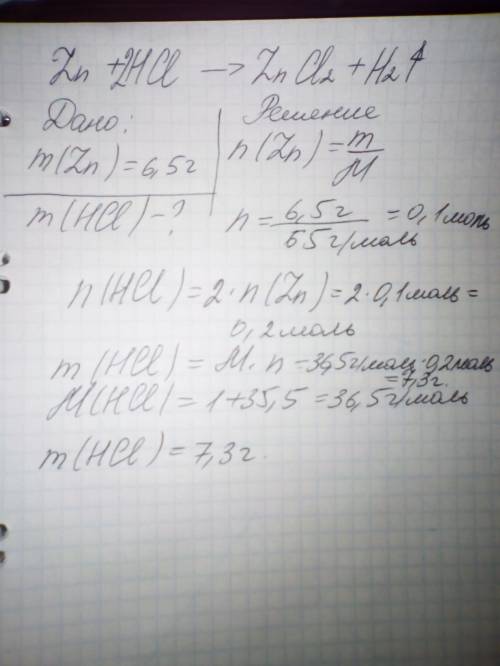 Zn + 2HCl → ZnCl₂ + H₂↑
Дано:
m(Zn) = 6,5г
m(HCl) - ?
Решение
n(Zn) = m/M
n = 6,5г / 65г/моль = 0,1моль
n(HCl) = 2·n(Zn) = 2·0,1моль =
0,2моль
m(HCl) = M·n = 36,5г/моль·0,2моль
= 7,3г.
M(HCl) = 1+35,5 = 36,5г/моль
m(HCl) = 7,3г.